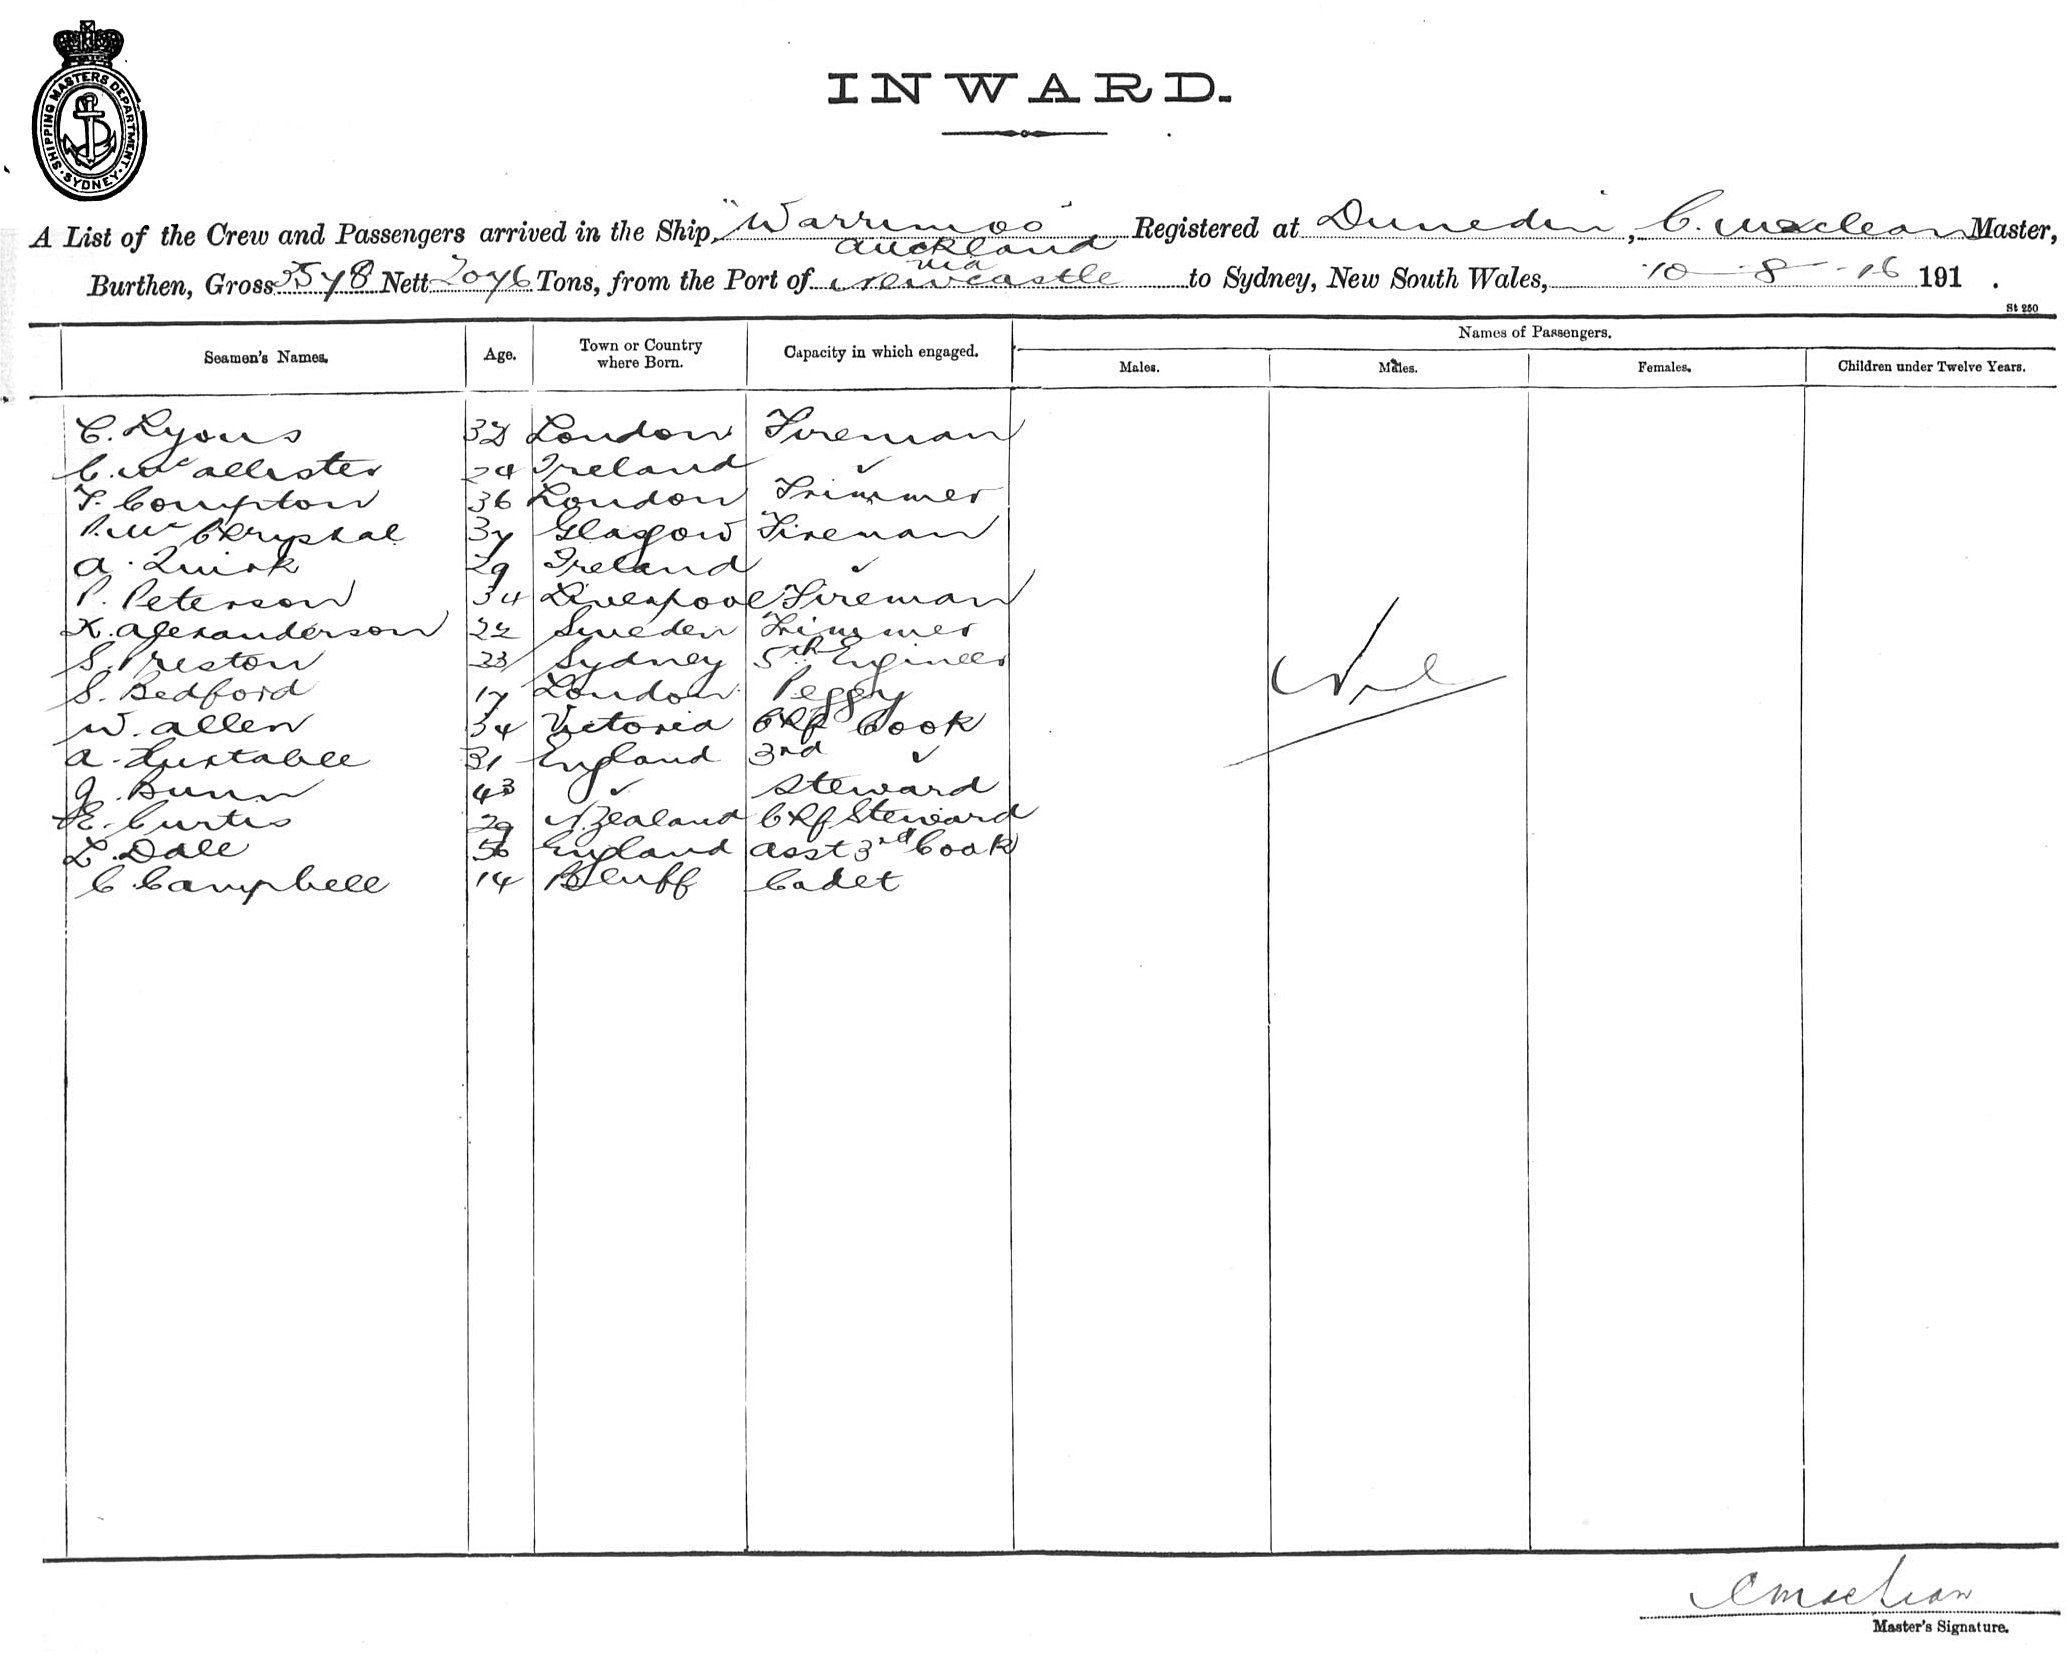 SHIPPING MASTERS DEPARTMENT · SYDNEY ·
INWARD.
A List of the Crew and Passengers arrived in the Ship, "Warrimoo" Registered at Dunedin, C. Maclean Master,
Auckland
via
Burthen, Gross 3578 Nett 2076 Tons, from the Port of Newcastle to Sydney, New South Wales, 10-8-16 191 .
St 250
Seamen's Names. Age. Town or Country where Born. Capacity in which engaged. Names of Passengers.
Males. Males. Females. Children under Twelve Years.
C. Lyons London Fireman
C. McAllister 24 Ireland ✓
F. Compton 36 London Trimmer
P. McChrystal 37 Glasgow Fireman
A. Quirk 29 Ireland ✓
P. Peterson 34 Liverpool Fireman
K. Alexanderson 22 Sweden Trimmer
S. Preston 23 Sydney 5th Engineer
S. Bedford 17 London Peggy
W. Allen 34 Victoria Chf Cook
A. Huxtable 31 England 3rd ✓
Bunn 43 ✓ Steward
E. Curtis 29 N. Zealand Chf Steward
L. Dale 56 England Asst 3rd Cook
C. Campbell 14 Bluff Cadet
Nil
C Maclean
Master's Signature.